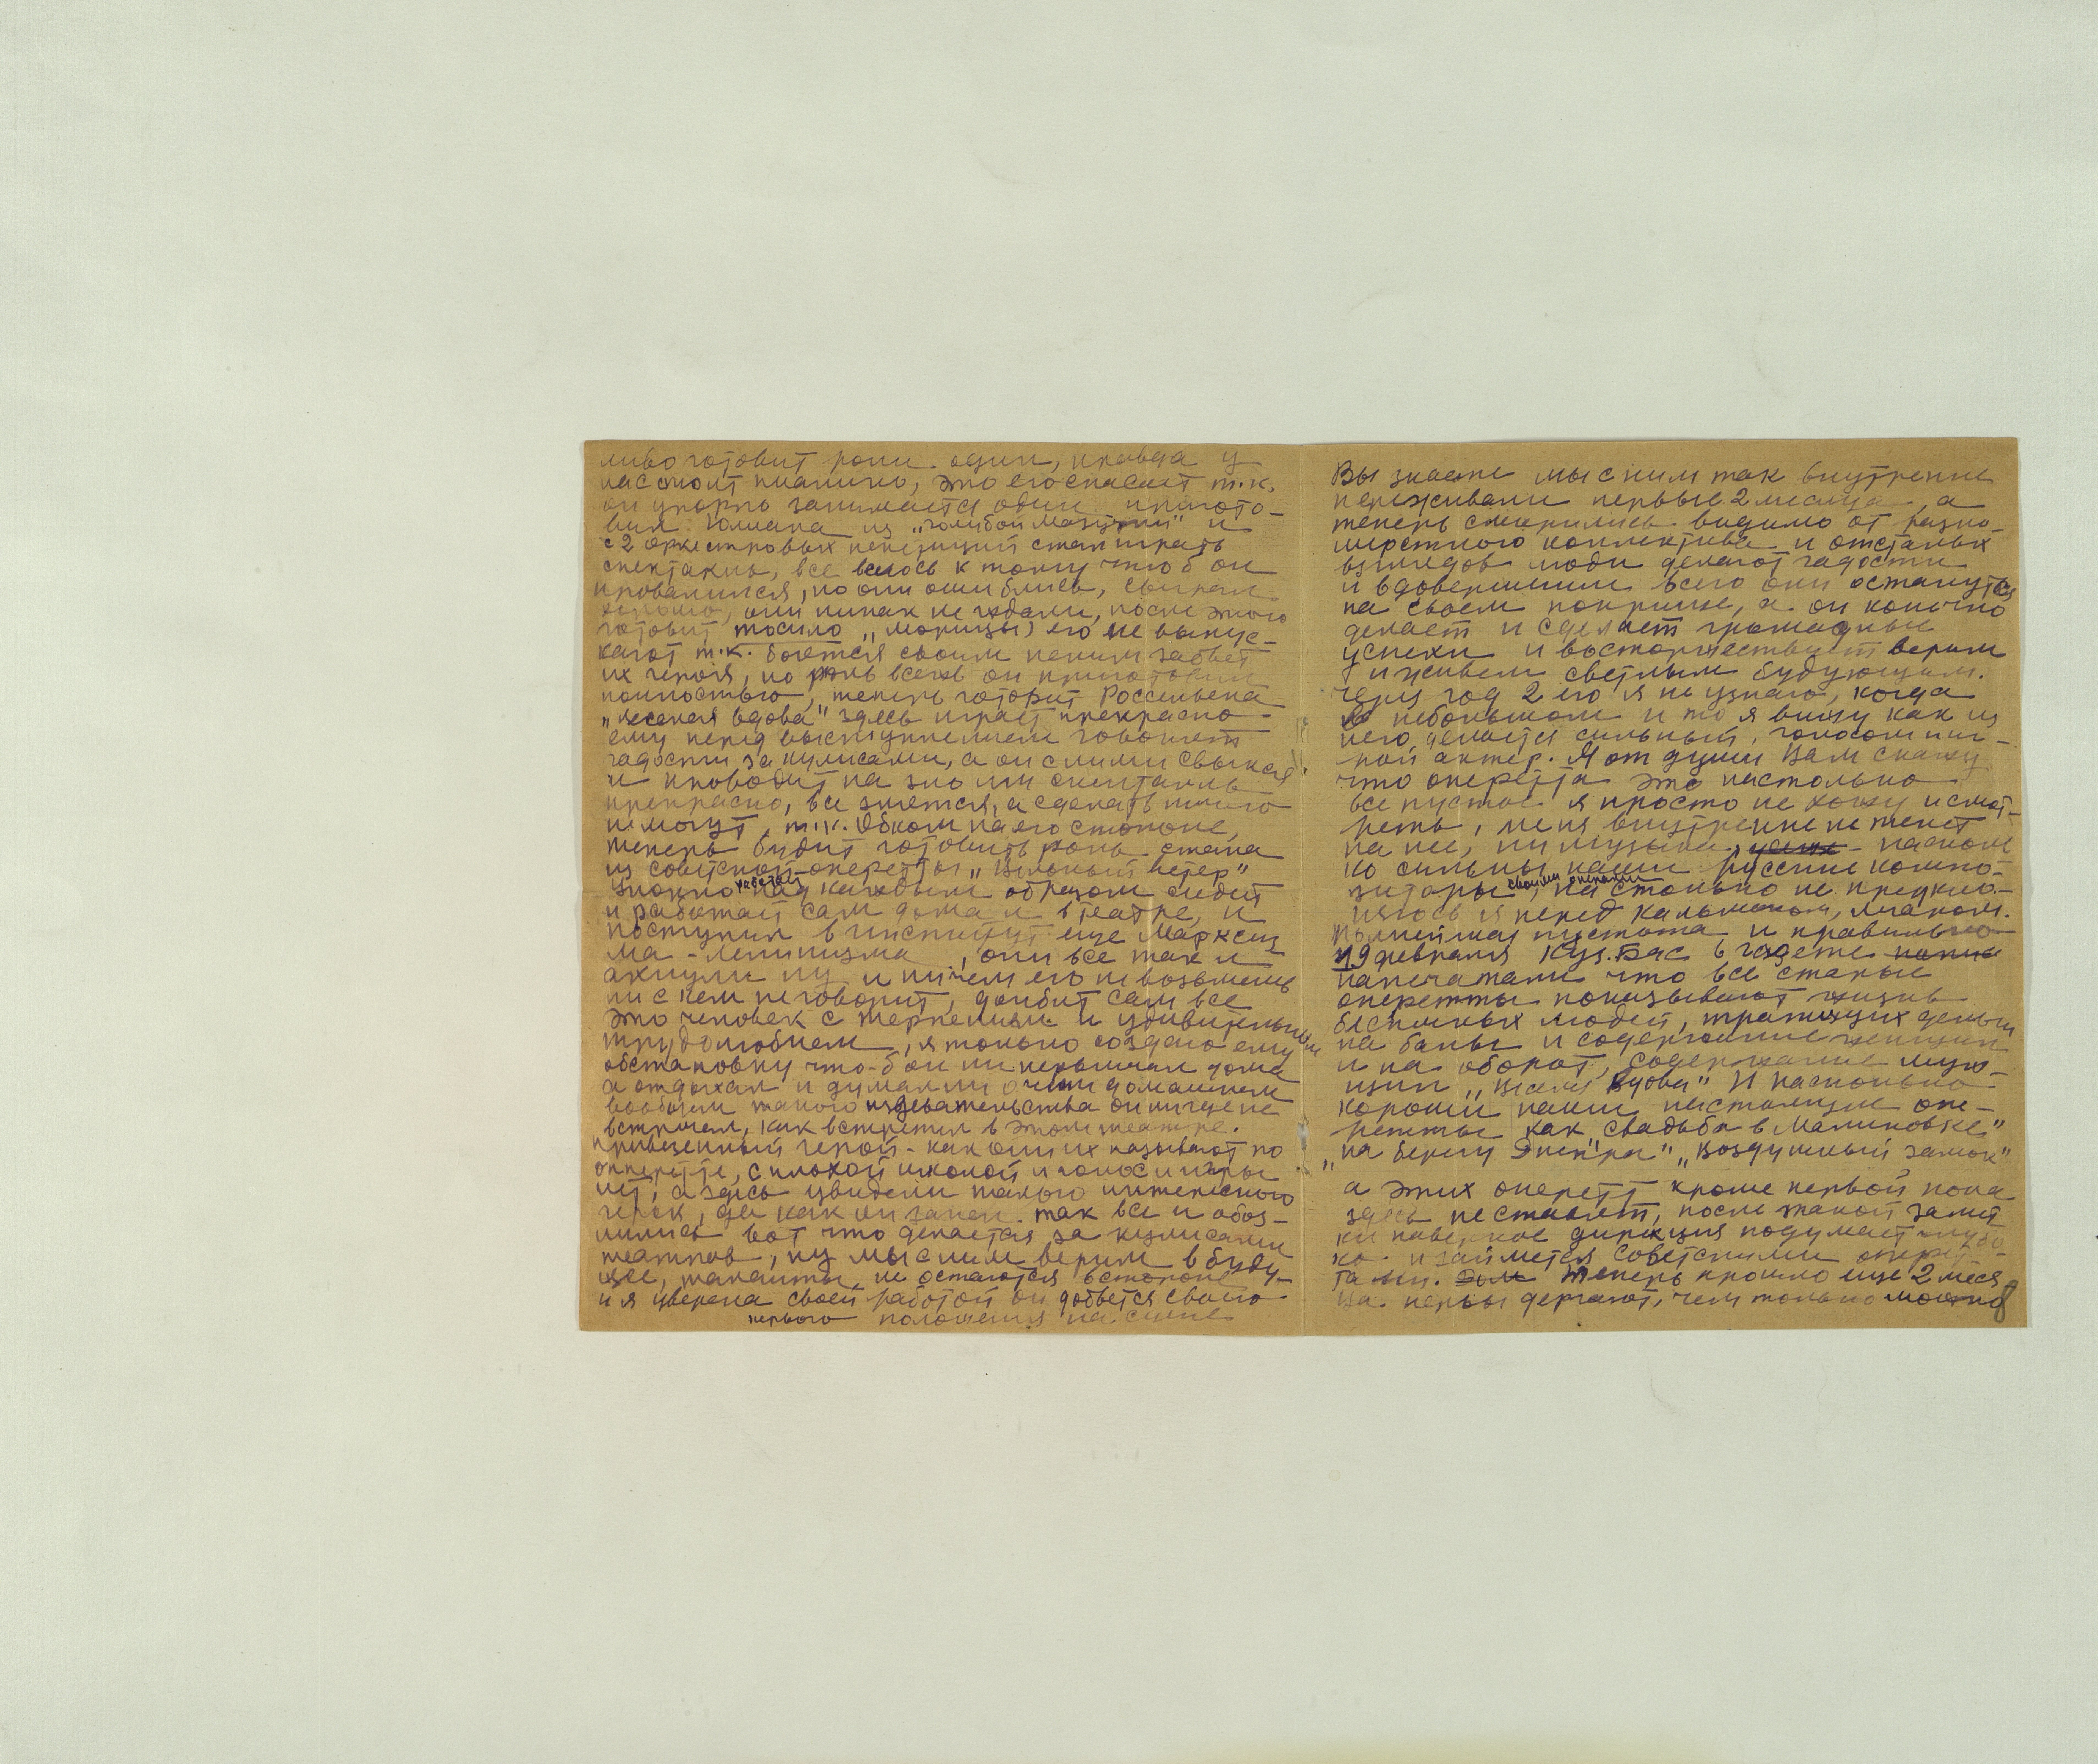 ливо готовит роли один, правда у
нас стоит пианино, это его спасает т.к.
он упорно занимается один пригото-
вил Юлиана из „Голубой Мазурки" и
с 2 оркестровых репетиций стал играть
спектакль, все велось к тому что б он
провалился, но они ошиблись, сыграл
хорошо, они никак не ждали, после этого
готовит Марицы) его не выпус-
кают т.к. боятся своим пением забьет
их героя, но роль всё он приготовил
полностью, теперь готовит Россильона
„Веселая вдова" здесь играет прекрасно
ему перед выступлением говорят
гадости за кулисами, а он с ними свыкся
и проводит на зло им спектакль
прекрасно, все злятся, а сделать ничего
не могут, т.к. Обком на его стороне,
теперь будит готовить роль
из советской оперетты „Вольный ветер"
работает
над каждым образом сидит
и работает сам дома и в театре, и
поступил в институт еще Марксиз
ма-ленинизма, они все так и
ахнули ну и ничем его не возьмешь
ни с кем не говорит, долбит сам все
это человек с терпением и удивительным
трудолюбием, я только создаю ему
обстановку что-б он не нервничал дома
а отдыхал и думал ни о чем домашнем
вообщем такого издевательства он нигде не
встречал, как встретил в этом театре.
привезенный герой - как они их называют по
оперетте, с плохой школой и голос и игры
нет, а здесь увидели такого интересного
да как он запел так все и обоз-
лились вот что делается за кулисами
театров, ну мы с ним верим в буду-
щее, таланты не остаются в стороне
и я уверена своей работой он добьется своего
первого положения на сцене
Вы знаете мы с ним так внутренне
переживали первые 2 месяца, а
теперь смирились видимо от разно-
шерстного коллектива и отсталых
взглядов люди делают гадости
и вдовершении всего они останутся
на своем поприще, а он конечно
делает и сделает громадные
успехи и восторжествует верим
и живем светлым будующим.
через год 2 его я не узнаю, когда
в небольшом и то я вижу как из
него делается сильный, голосом иг-
рой актер. Я от души Вам скажу
что оперетта это настолько
все пустое я просто не хожу и смот-
реть, меня внутренне не тянет
на нее, ни музыка, - насколь
ко сильны наши русские компо-
своими операми
зиторы, на столько не преукло-
няюсь я перед Кальманом, Легаром.
пустота и правильно
19 февраля Куз.Бас в газете
напечатали что все старые
оперетты показывают жизнь
бесполезных людей, тратящих деньги
на балы и содержание женщин
и на оборот, содержание муж-
щин „Веселая вдова" И насколько
хороши наши настоящие опе-
ретты как „Свадьба в Малиновке"
„На берегу Днепра" „Воздушный замок"
а этих оперетт кроме первой пока
здесь не ставят, после такой замет
ки наверное дирекция подумает глубо
ко и займется советскими оперет-
тами. Теперь прошло еще 2 меся
ца. нервы дергают, чем только можно
8